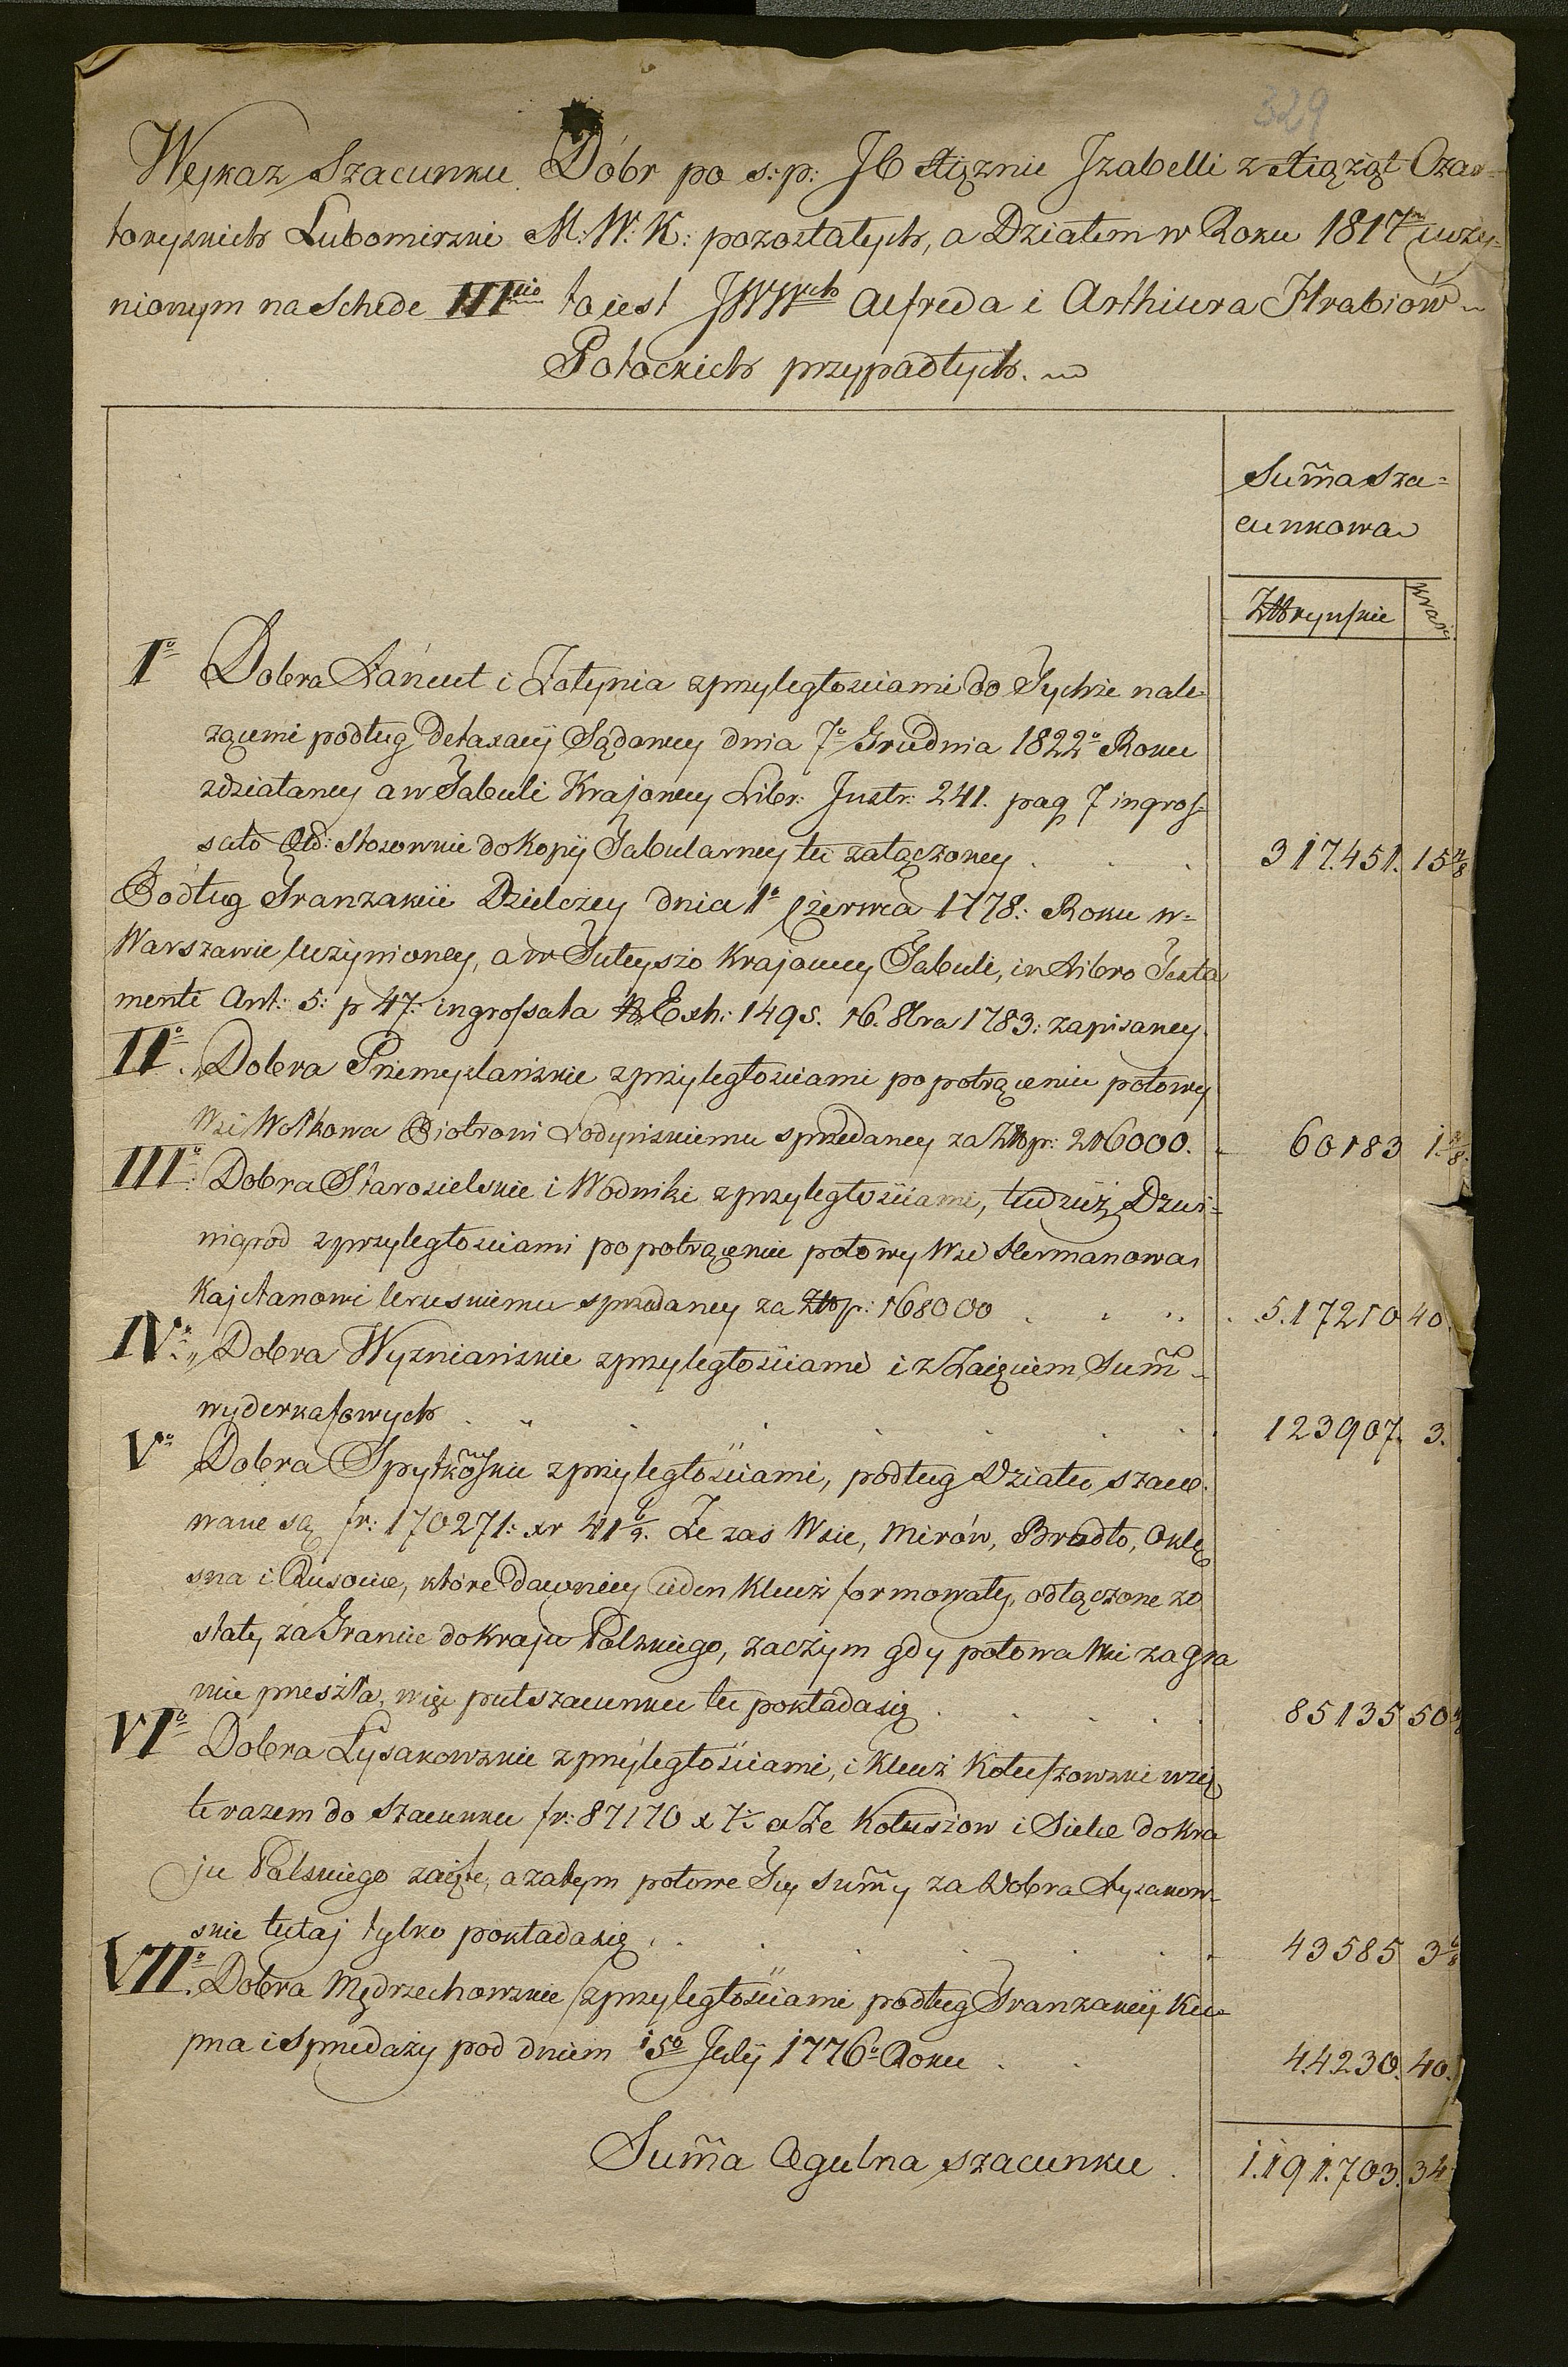 329
Wykaz Szacunku Dóbr po s: p: JO Xiężnie Izabelli z Xiążąt Czar=
toryskich Lubomirski M: W: K: pozostałych, a Działem w Roku 1817m uczy=
nionym na Schede IIItio to iest JWWch Alfreda i Arthiura Hrabiów
Potockich przypadłych.
Sum̃a Sza=
cunkowa
ZłRyńskie kray
I° Dobra Łańcut i Żołynia z przyległościami do Tychże nale=
żącemi podług Detaxacÿ Sądowey dnia 7° Grudnia 1822° Roku
zdziałaney a w Tabuli Krajowey Libr: Instr: 241. pag 7 ingros=
sato stosownie do Kopÿ Tabularney tu załączoney . . . 317.451. 15 2/8
Podług Tranzakcii Dzielczey dnia 1° Czerwca 1778: Roku w=
Warszawie uczynioney, a w Tuteyszo Krajowey Tabuli, in Libro Testa
menti Ant: 5: p 47: ingrossata Exh: 1495. 16. 8bra 1783: zapisaney.
II°. Dobra Przemyslańskie z przyległościami po potrąceniu połowy
Wsi Wołkowa Piotrowi Łodyńskiemu sprzedaney za Złtp: 216000. 60183 1 2/8.
III°: Dobra Starosielskie i Wodniki z przyległościami, tudzież Dzwi=
nigrod z przyległościami po potrącenie połowy Wsi Hermanowa
Kajetanowi Uruskiemu sprzedaney za Złtp: 168000 . . . 5.17210 40
IV°: „ Dobra Wyżniańskie z przyległościami i z Zaięciem Sum̃
wyderkafowych . . . 123907. 3.
V° Dobra Spytkowskie z przyległościami, podług Działu szaco=
wane są fr: 170271: xr 41 1/2. Że zas Wsie, Mirów, Brodło, Okle
sna i Rusocice, które dawniey ieden Klucz formowały, odłączone zo
stały za Granice do Kraju Polskiego, zaczym gdy połowa Wsi za gra
nice przeszła, więc puł szacunku tu pokłada się . . . 85135 50
VI° Dobra Łysakowskie z przyległościami, i Klucz Kotuszowski wzię
te razem do Szacunku fr: 87170 x 7: a Że Kotuszow i Sielce do kra
ju Polskiego zaięte, a zatym połowe Tey Sum̃y za Dobra Łysakow=
skie tutaj tylko pokłada się . . . 43585 3
VII°. Dobra Mędrzechowskie z przyległościami podług Tranzakcÿ Ku=
pna i Sprzedaży pod dniem 15° Julÿ 1776° Roku . . 44230. 40.
Sum̃a Ogulna szacunku . 1.191.703. 34